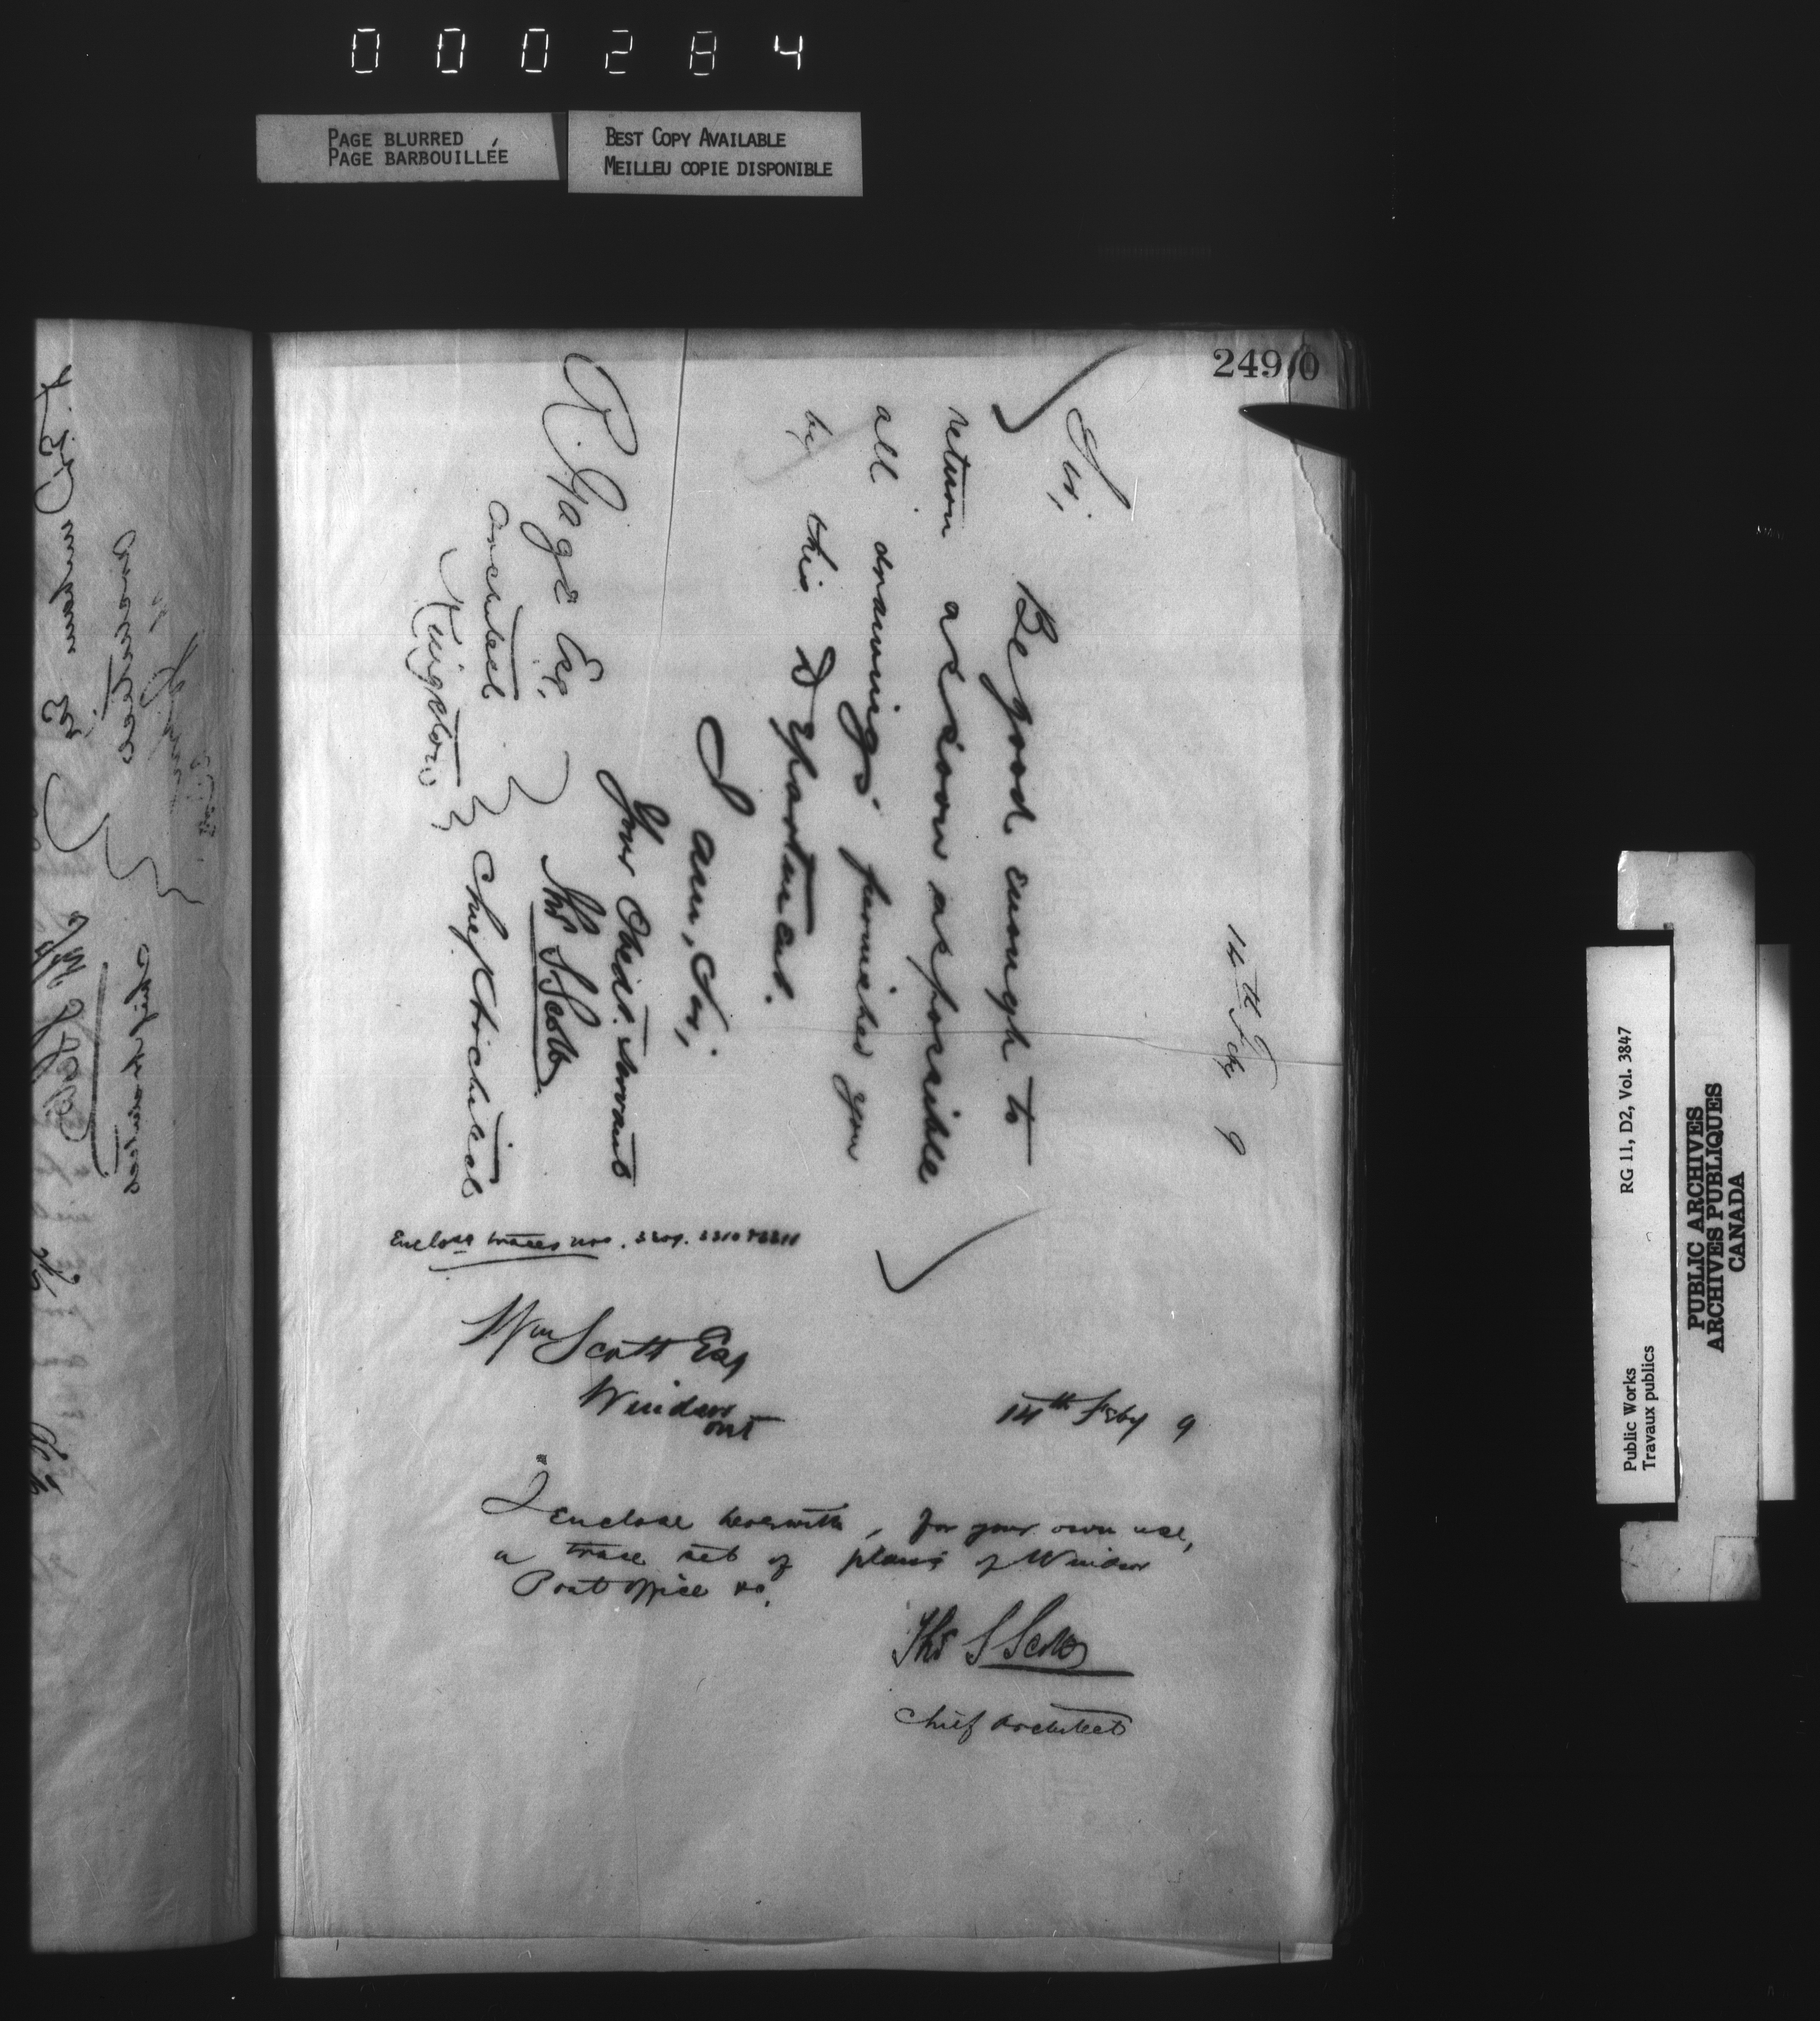 000284
PAGE BLURRED
PAGE BARBOUILLÉE
BEST COPY AVAILABLE
MEILLEU COPIE DISPONIBLE
24910
14th Feby 9
Sir,
Be good enough to
return as soon as possible
all drawings furnished you
by this Department.
I am, Sir,
Your Obedt. servant
Thos S Scott
Chief Architect
R. Gage Esq,
Architect
Kingston
Enclose traces nos.
Wm Scott Esq
Windsor
Ont
14th Feby 9
I enclose herewith, for your own use,
a trace set of plans of Windsor
Post office &c.
Thos S Scott
Chief Architect
RG 11, D2, Vol. 3847
Public Works
Travaux publics
PUBLIC ARCHIVES
ARCHIVES PUBLIQUES
CANADA